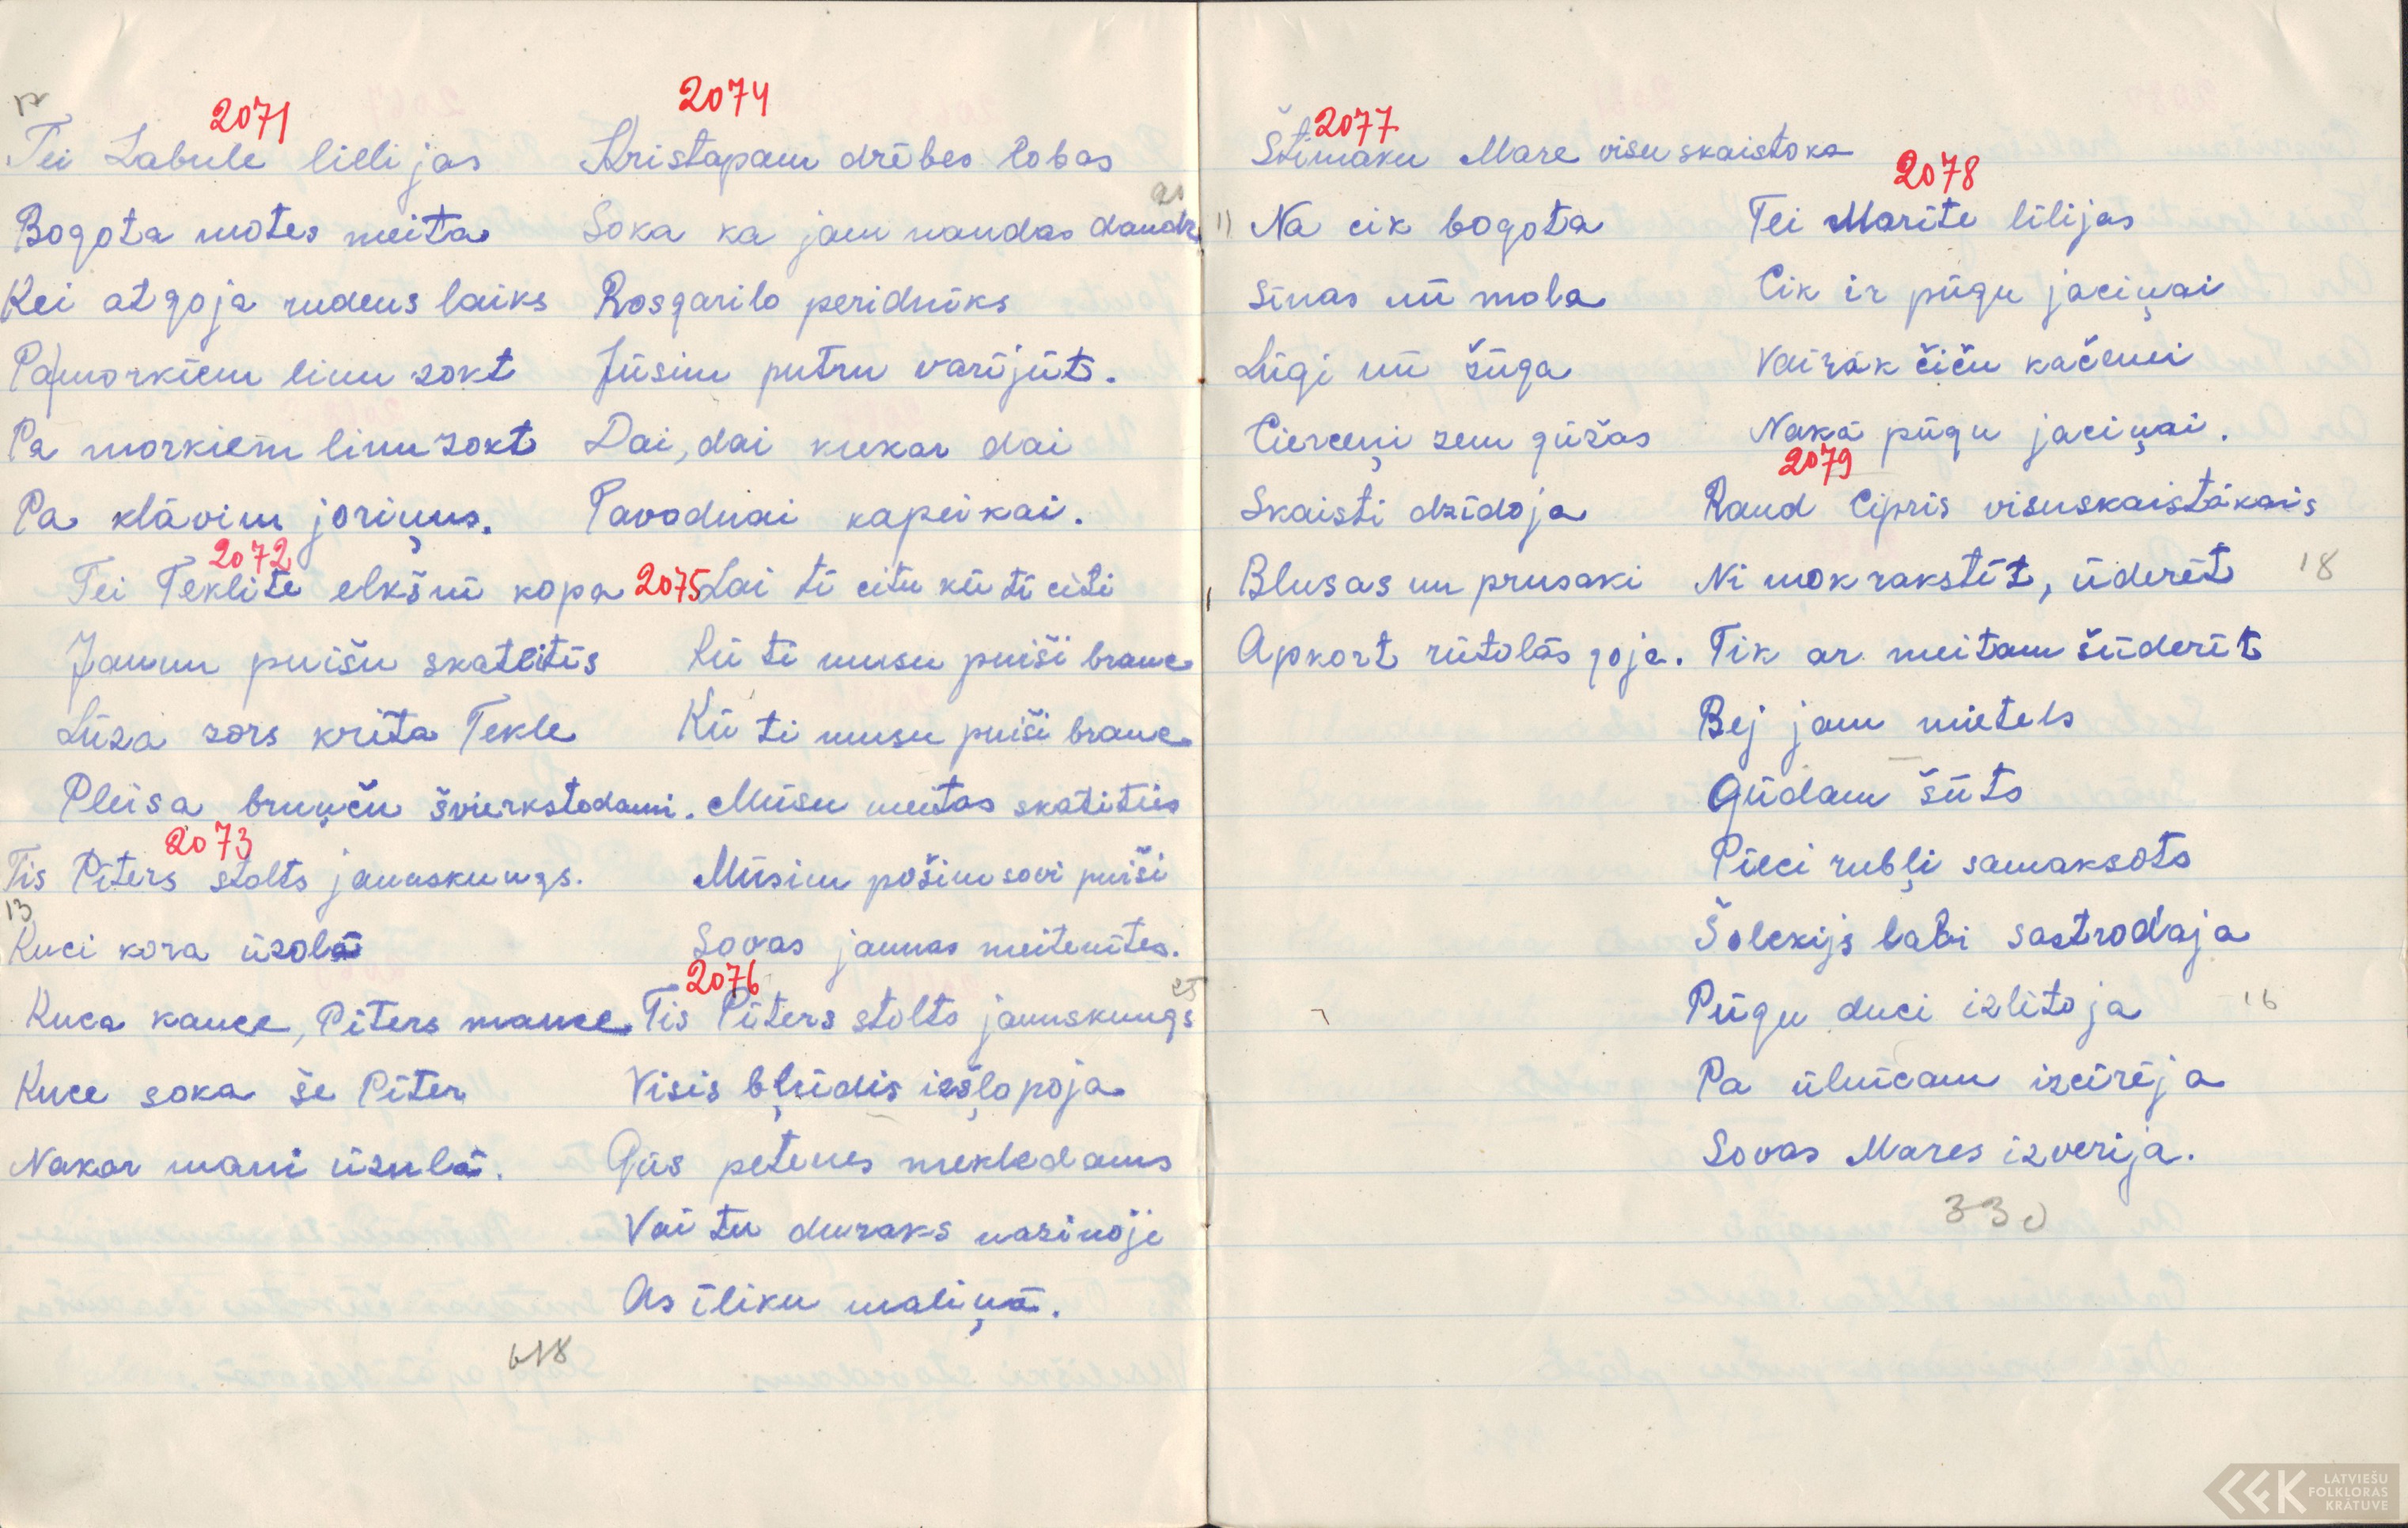 2071
Tei Labule lillijas
Bogota motes meita
Kei atgoja rudens laiks
Pa morkiem linu zokt
Pa morkiem linu zokt
Pa klāvim joriņus.
2072
Tei Teklite elkšnī kopa
Jaunu puišu skateitīs
Lūza zors krita Tekle
Pleisa brunču švierkstodami.
2073
Tis Pīters stolts jaunskungs.
13
Kuci kora ūzolā
Kuca kauce, Pīters mauce
Kuce soka še Pīter
Nakar mani ūzulā.
2074
Kristapam drēbes lobas
20
Soka ka jam naudas daudz
Rosgarilo peridnīks
Jūsim putru varījūt.
Dai, dai kukar dai
Pavodnai kapeikai.
2075
Lai tī citu kū tī citi
Kū ti musu puiši brauc
Kū ti musu puiši brauc
Mūsu meitas skatitūs
Mūsim pošim sovi puiši
Sovas jaunas meitenītes.
2076
25
Tis Pīters stolts jaunskungs
Visis bļūdis izšļopoja
Gūs petenes mekledams
Vai tu duraks nazinoji
As īliku maliņā.
618
2077
Štimaku Mare visu skaistoka
11 Na cik bogota
Sīnas nū mola
Lūgi nū žūga
Cierceņi zem gūžas
Skaisti dzīdoja
Blusas un prusaki
Apkort rūtolās goja.
2078
Tei Marīte līlijas
Cik ir pūgu jaciņai
Vairāk čiču kačemi
Nakā pūgu jaciņai.
2079
Raud Cipris visuskaistākais
Ni mok rakstīt, ūderēt
18
Tik ar meitam šūderēt
Bej jam mietels
Gūdam šūts
Pīeci rubļi samaksots
Šolekijs labi sastrodaja
Pūgu duci izlītoja
16
Pa ūlnīcam izcīrēja
Sovas Mares izverija.
330
LATVIEŠU
FOLKLORAS
KRĀTUVE